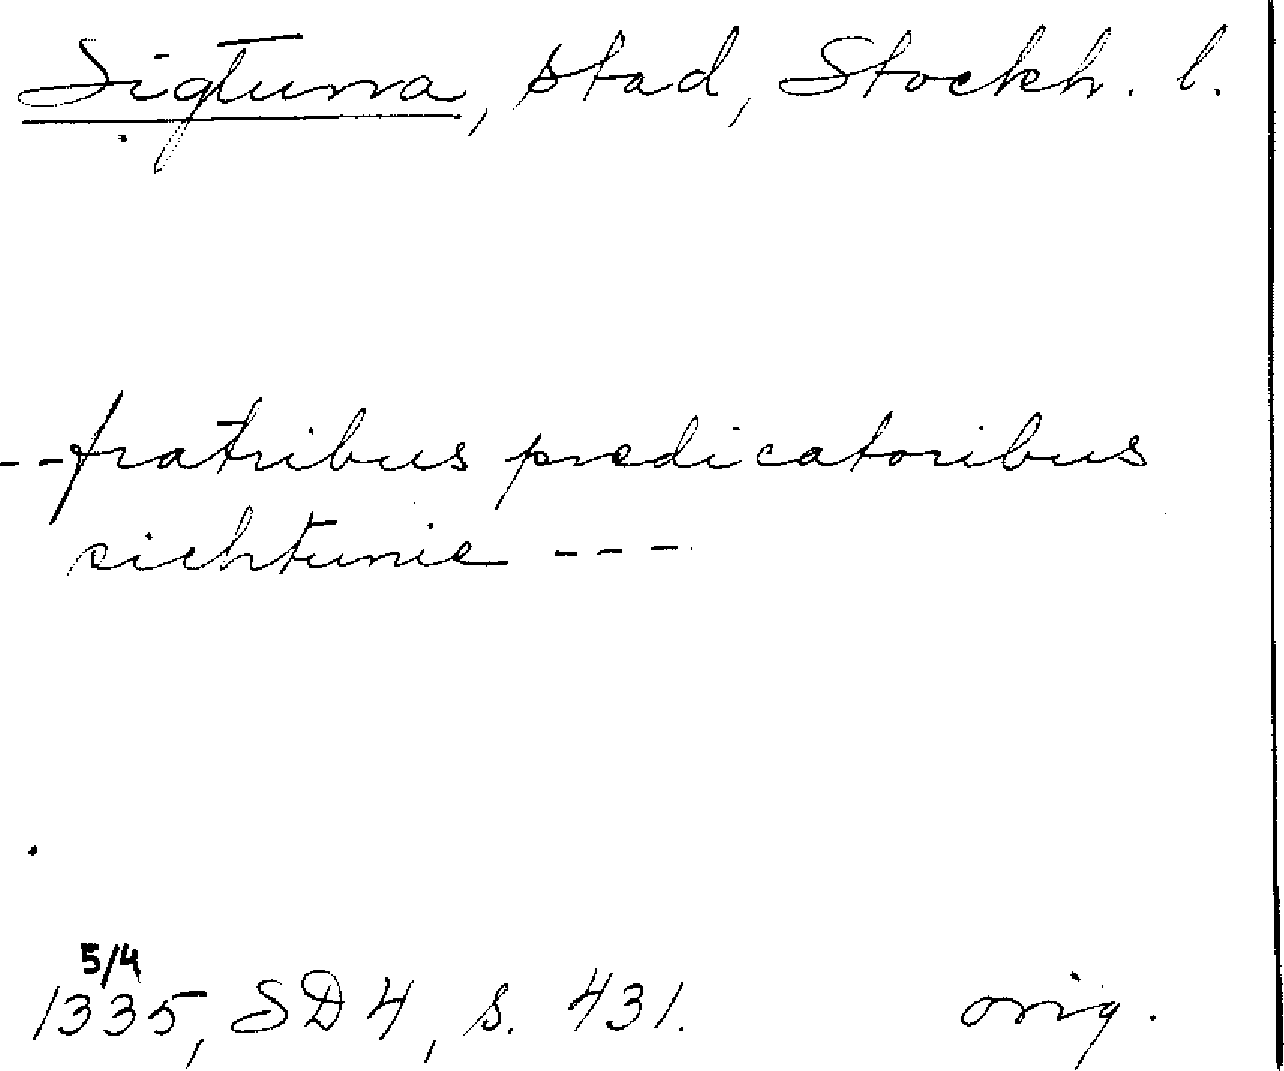 Sigtuna, stad, Stockh. l.
--fratribus predicatoribus
sichtunie ---
5/4
1335, SD 4, s. 431. orig.